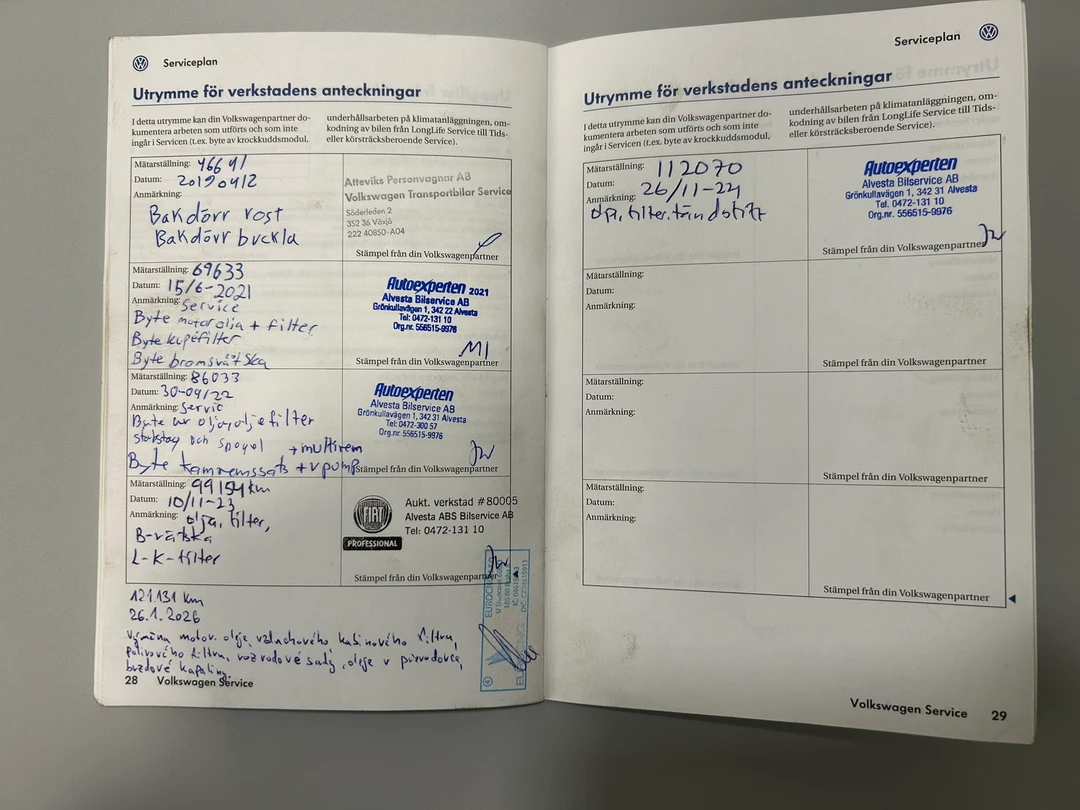 Serviceplan
Utrymme för verkstadens anteckningar
I detta utrymme kan din Volkswagenpartner do-
kumentera arbeten som utförts och som inte
ingår i Servicen (t.ex. byte av krockkuddsmodul,
underhållsarbeten på klimatanläggningen, om-
kodning av bilen från LongLife Service till Tids-
eller körsträcksberoende Service).
Mätarställning: 46641
Datum: 20190412
Anmärkning:
Bakdörr rost
Bakdörr buckla
Atteviks Personvagnar AB
Volkswagen Transportbilar Service
Söderleden 2
352 36 Växjö
222 40850-A04
Stämpel från din Volkswagenpartner
Mätarställning: 69633
Datum: 15/6-2021
Anmärkning: Service
Byte motorolja + filter
Byte kupéfilter
Byte bromsvätska
Autoexperten 2021
Alvesta Bilservice AB
Grönkullavägen 1, 342 22 Alvesta
Tel: 0472-131 10
Org.nr. 556515-9976
Stämpel från din Volkswagenpartner
Mätarställning: 86033
Datum: 30-04/22
Anmärkning: Servic
Byte av olja, oljefilter
och
+ multirem
Byte kamremssats + vpump
Autoexperten
Alvesta Bilservice AB
Grönkullavägen 1, 342 31 Alvesta
Tel: 0472-300 57
Org.nr. 556515-9976
Stämpel från din Volkswagenpartner
Mätarställning: 99154 km
Datum: 10/11-23
Anmärkning: olja, filter,
B-vätska
L-K-filter
FIAT
PROFESSIONAL
Aukt. verkstad #80005
Alvesta ABS Bilservice AB
Tel: 0472-131 10
Stämpel från din Volkswagenpartner
121131 km
26.1.2026
Výměna motor. oleje, vzduchového, kabinového filtru,
palivového filtru, rozvodové sady, oleje v převodovce,
brzdové kapaliny
28 Volkswagen Service
Serviceplan
Utrymme för verkstadens anteckningar
I detta utrymme kan din Volkswagenpartner do-
kumentera arbeten som utförts och som inte
ingår i Servicen (t.ex. byte av krockkuddsmodul,
underhållsarbeten på klimatanläggningen, om-
kodning av bilen från LongLife Service till Tids-
eller körsträcksberoende Service).
Mätarställning: 112070
Datum: 26/11-24
Anmärkning:
filter, tändstift
Autoexperten
Alvesta Bilservice AB
Grönkullavägen 1, 342 31 Alvesta
Tel. 0472-131 10
Org.nr. 556515-9976
Stämpel från din Volkswagenpartner
Mätarställning:
Datum:
Anmärkning:
Stämpel från din Volkswagenpartner
Mätarställning:
Datum:
Anmärkning:
Stämpel från din Volkswagenpartner
Mätarställning:
Datum:
Anmärkning:
Stämpel från din Volkswagenpartner
Volkswagen Service 29